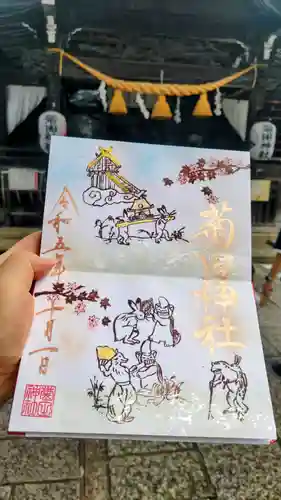 菊田神社
令和五年十月一日